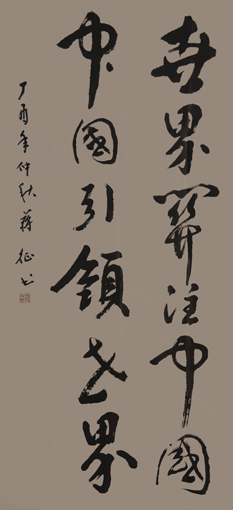 世界關注中國
中國引領世界
丁酉年仲秋蔣征书